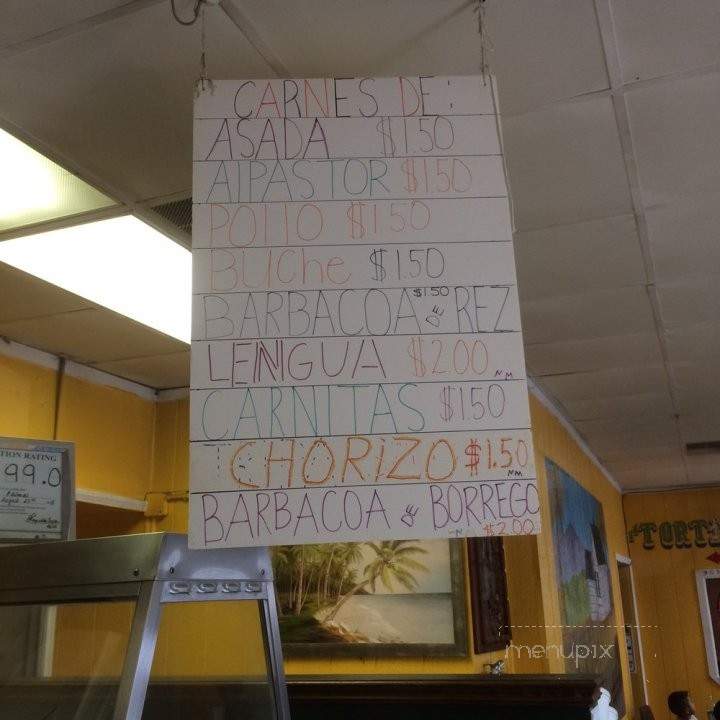 CARNES DE:
ASADA $1.50
AlPASTOR $1.50
POllO $1.50
BUChe $1.50
BARBACOA DE REZ $1.50
LENGUA $2.00
CARNITAS $150
CHORIZO $1.50
BARBACOA DE BORREGO
$2.00
TION RATING
99.0
TORTI
menupix